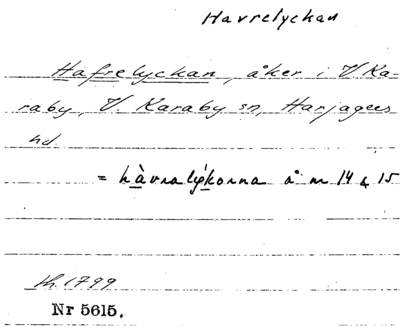 Havrelyckan
Hafrelyckan, åker i V Ka-
raby, V. Karaby sn, Harjagers
hd
= hàvralýkorna å nr 14 & 15
lh. 1799
Nr 5615.